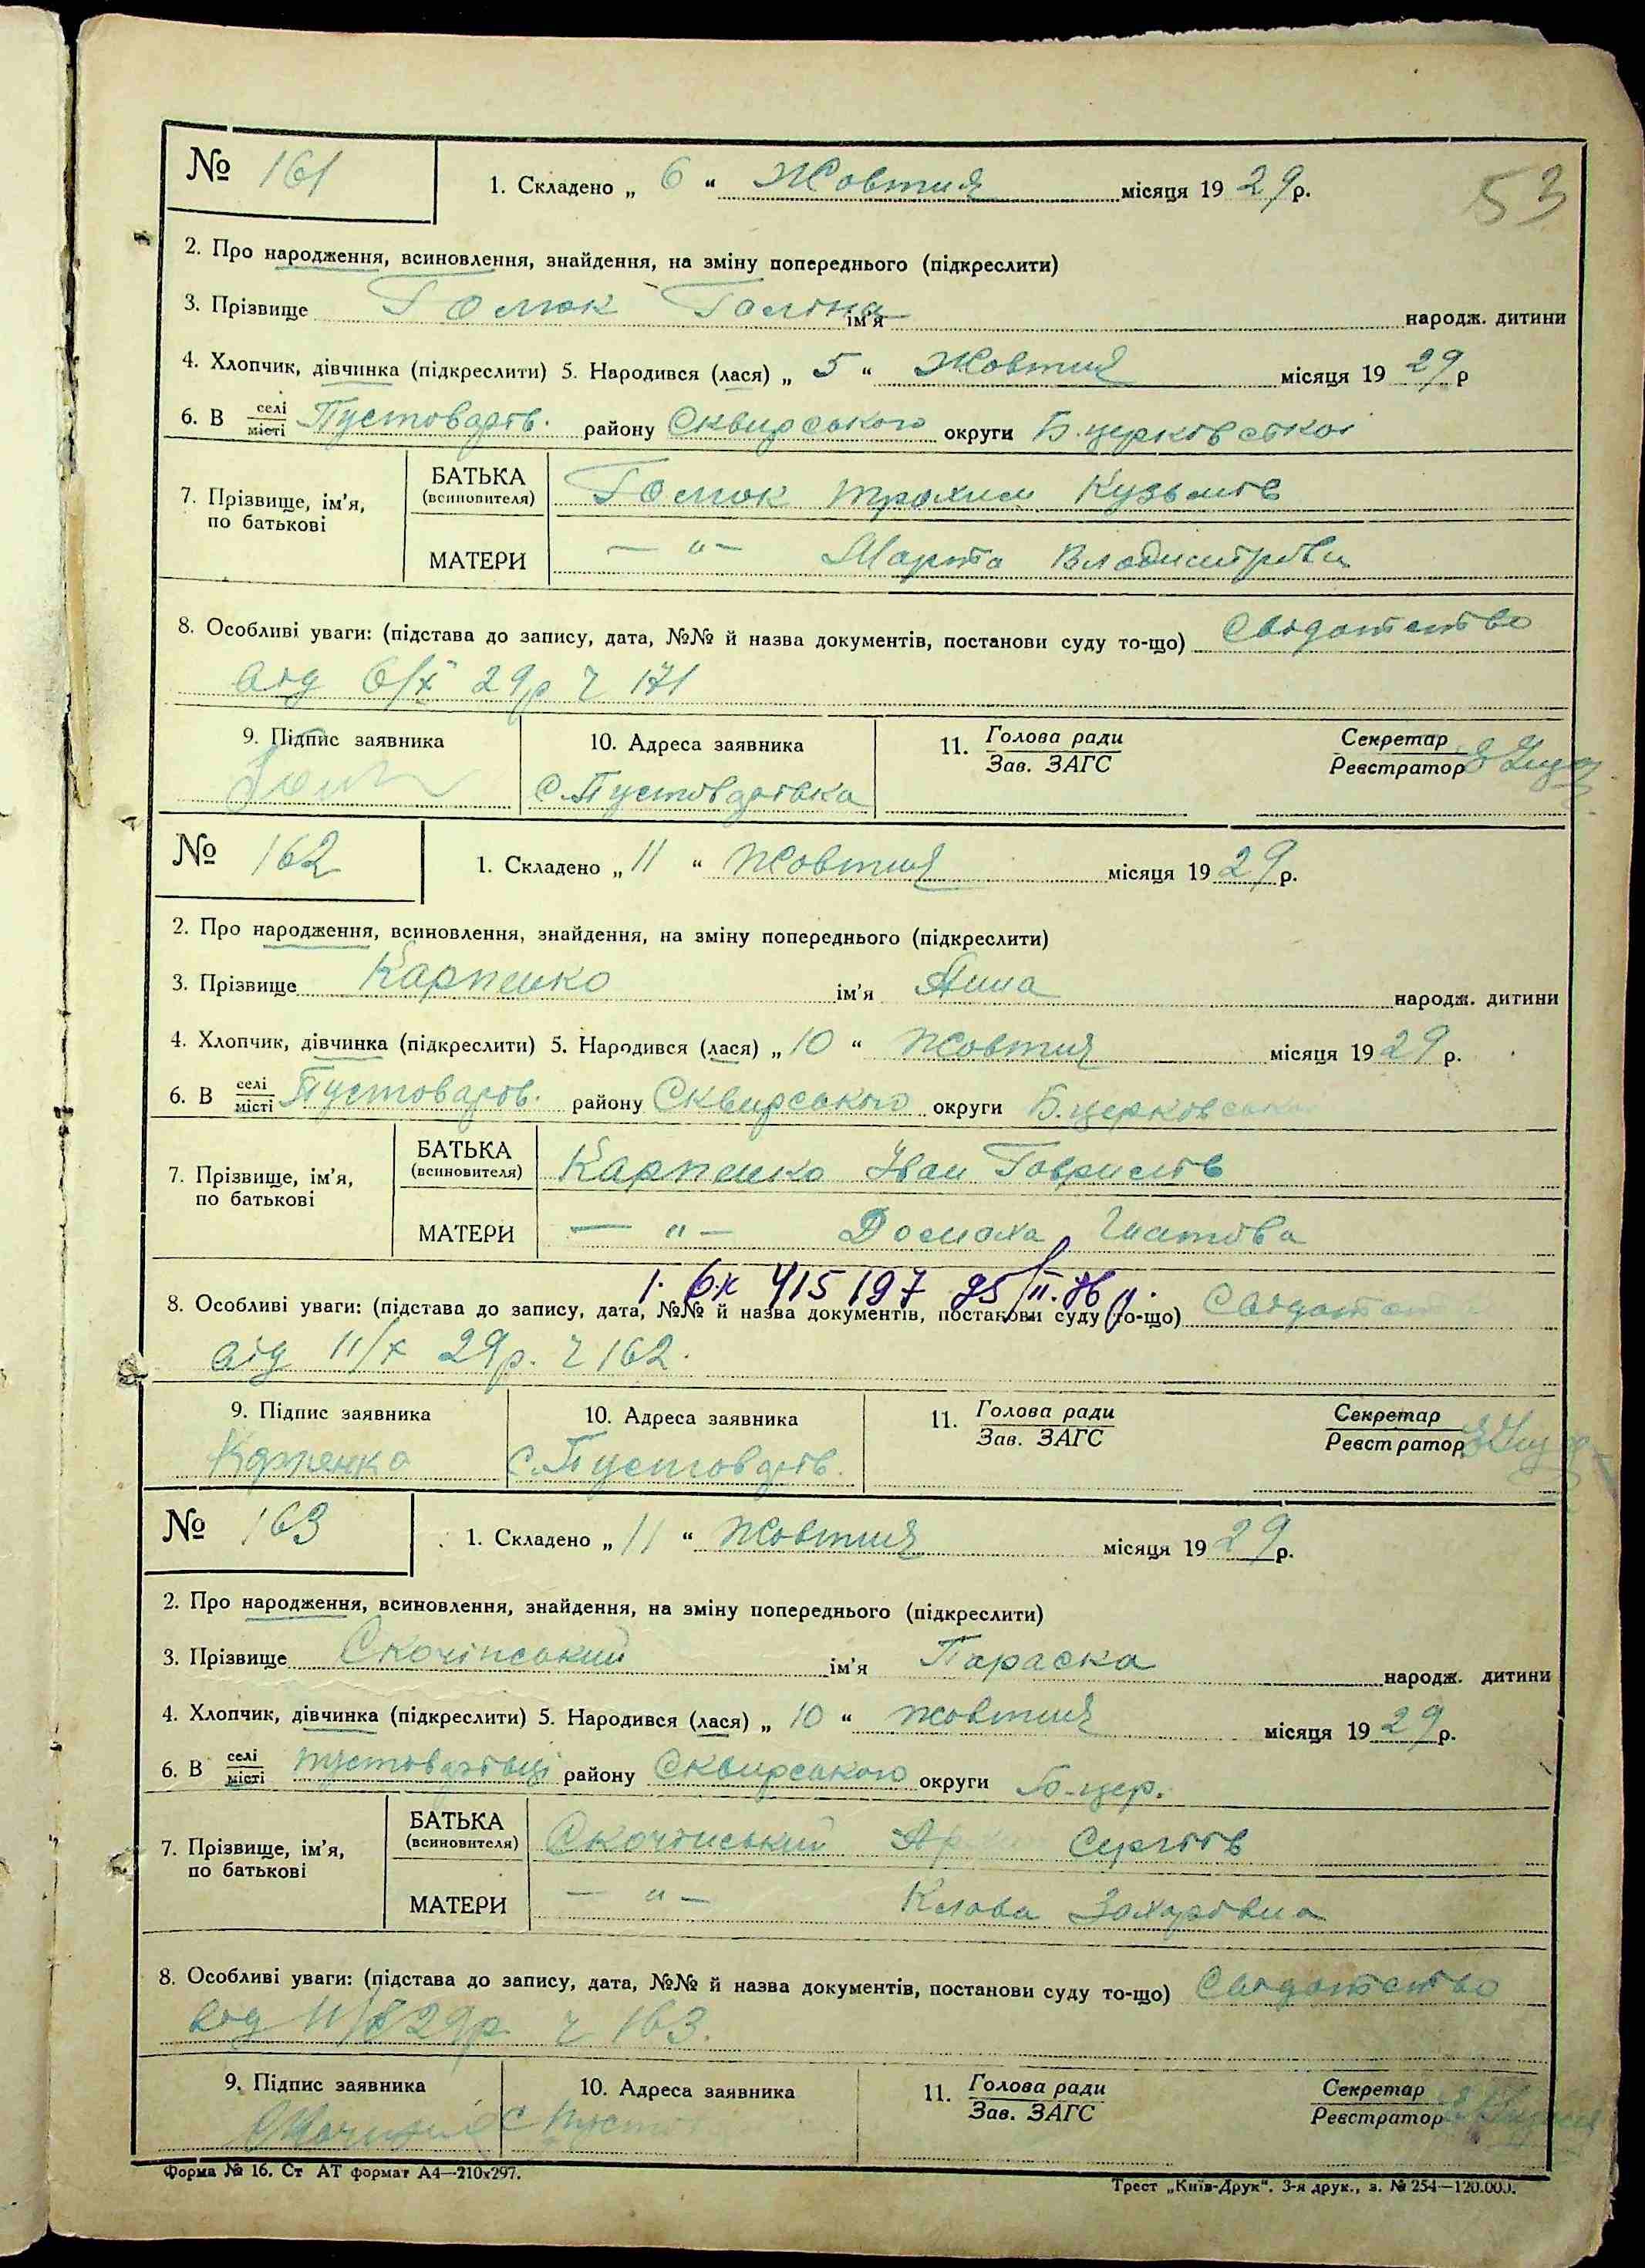 № 161
1. Складено „ 6 “ Жовтня місяця 1929 р.
53
2. Про народження, всиновлення, знайдення, на зміну попереднього (підкреслити)
3. Прізвище Гомок Галіна ім'я народж. дитини
4. Хлопчик, дівчинка (підкреслити) 5. Народився (лася) „ 5 “ Жовтня місяця 1929 р
6. В селі місті Пустоварів. району Сквирського округи Б. церковської
7. Прізвище, ім'я, по батькові
БАТЬКА (всиновителя) Гомок Трохим Кузьмів
МАТЕРИ — „ — Марта
8. Особливі уваги: (підстава до запису, дата, №№ й назва документів, постанови суду то-що) Свідотство
від 6/X 29р ч 171
9. Підпис заявника 10. Адреса заявника 11. Голова ради Зав. ЗАГС Секретар Реєстратор
с. Пустоварівка
№ 162
1. Складено „ 11 “ Жовтня місяця 1929 р.
2. Про народження, всиновлення, знайдення, на зміну попереднього (підкреслити)
3. Прізвище Карпенко ім'я Анна народж. дитини
4. Хлопчик, дівчинка (підкреслити) 5. Народився (лася) „ 10 “ Жовтня місяця 1929 р.
6. В селі місті Пустоварів. району Сквирського округи Б. церковської
7. Прізвище, ім'я, по батькові
БАТЬКА (всиновителя) Карпенко Іван Гаврилів
МАТЕРИ — „ — Домаха Гнатова
415197
8. Особливі уваги: (підстава до запису, дата, №№ й назва документів, постанови суду то-що) Свідотство
від 11/X 29р. ч 162.
9. Підпис заявника 10. Адреса заявника 11. Голова ради Зав. ЗАГС Секретар Реєстратор
Карпенко с. Пустоварів.
№ 163
1. Складено „ 11 “ Жовтня місяця 1929 р.
2. Про народження, всиновлення, знайдення, на зміну попереднього (підкреслити)
3. Прізвище Скочінський ім'я Параска народж. дитини
4. Хлопчик, дівчинка (підкреслити) 5. Народився (лася) „ 10 “ жовтня місяця 1929 р.
6. В селі місті Пустоварівці району Сквирського округи Б-цер.
7. Прізвище, ім'я, по батькові
БАТЬКА (всиновителя) Скочінський Сергіїв
МАТЕРИ — „ — Захарівна
8. Особливі уваги: (підстава до запису, дата, №№ й назва документів, постанови суду то-що) Свідотство
від 11/X 29р ч 163.
9. Підпис заявника 10. Адреса заявника 11. Голова ради Зав. ЗАГС Секретар Реєстратор
Форма № 16. Ст АТ формат А4—210х297.
Трест „Київ-Друк“. 3-я друк., з. № 254—120.000.